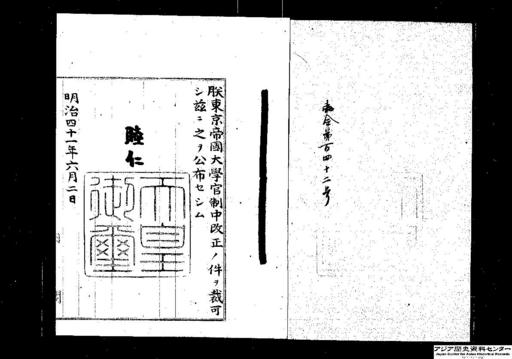 勅令第百四十二号
朕東京帝國大學官制中改正ノ件ヲ裁可
シ茲ニ之ヲ公布セシム
睦仁
天皇
御璽
明治四十一年六月二日
アジア歴史資料センター
Japan Center for Asian Historical Records